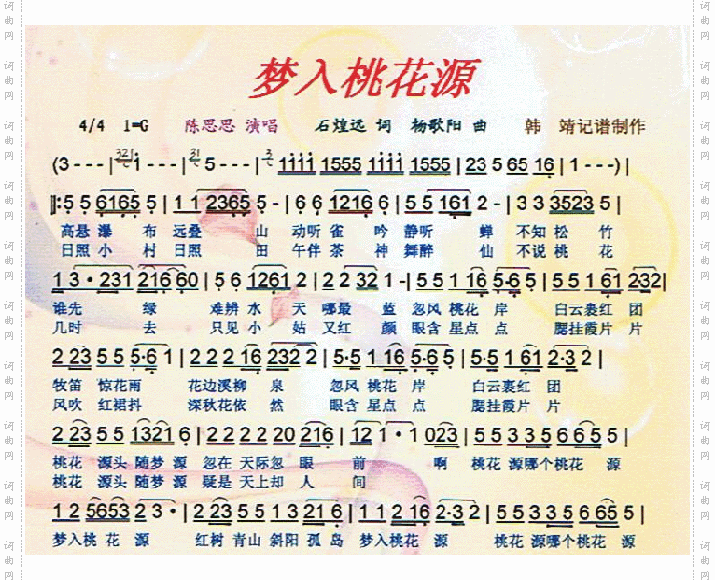 梦入桃花源
4/4 1=G 陈思思 演唱 石煌远 词 杨歌阳 曲 韩 靖记谱制作
(3 - - - | 1 - - - | 5 - - - | 1111 1555 1111 1555 | 23 5 65 16 | 1 - - -) |
|:5 5 6165 5 | 1 1 2365 5 - | 6 6 1216 6 | 5 5 161 2 - | 3 3 3523 5 |
高悬 瀑 布 远叠 山 动听 雀 吟 静听 蝉 不知 松 竹
日照 小 村 日照 田 午伴 茶 神 舞醉 仙 不说 桃 花
1 3 · 231 21660 | 5 6 1261 2 | 2 2 32 1 - | 5 5 1 16 5·6 5 | 5 5 1 61 232 |
谁先 绿 难辨 水 天 哪最 蓝 忽风 桃花 岸 白云裹红 团
几时 去 只见 小 姑 又红 颜 眼含 星点 点 腮挂霞片 片
2 23 5 5 5·6 1 | 2 2 2 16 232 2 | 5·5 1 16 5·6 5 | 5·5 1 61 2·3 2 |
牧笛 惊花雨 花边溪柳 泉 忽风 桃花 岸 白云裹红 团
风吹 红裙抖 深秋花依 然 眼含 星点 点 腮挂霞片 片
2 23 5 5 1321 6 | 2 2 2 2 20 216 | 12 1 · 1 023 | 5 5 3 3 5 6 6 5 5 |
桃花 源头 随梦 源 忽在 天际忽 眼 前 啊 桃花 源哪个桃花 源
桃花 源头 随梦 源 疑是 天上却 人 间
1 2 5653 2 3 · | 2 23 5 5 1 3 216 | 1 1 2 16 2·3 2 | 5 5 3 3 5 6 65 5 |
梦入桃 花 源 红树 青山 斜阳 孤 岛 梦入桃花 源 桃花 源哪个桃花 源
词曲网
词曲网
词曲网
词曲网
词曲网
词曲网
词曲网
词曲网
词曲网
词曲网